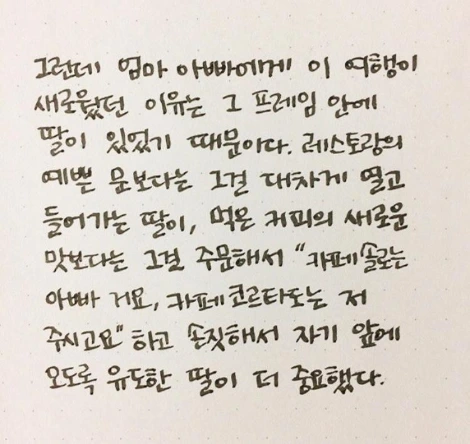 그런데 엄마 아빠에게 이 여행이
새로웠던 이유는 그 프레임 안에
딸이 있었기 때문이다. 레스토랑의
예쁜 문보다는 그걸 대차게 열고
들어가는 딸이, 먹은 커피의 새로운
맛보다는 그걸 주문해서 "카페솔로는
아빠 거요, 카페코르타도는 저
주시고요" 하고 손짓해서 자기 앞에
오도록 유도한 딸이 더 중요했다.